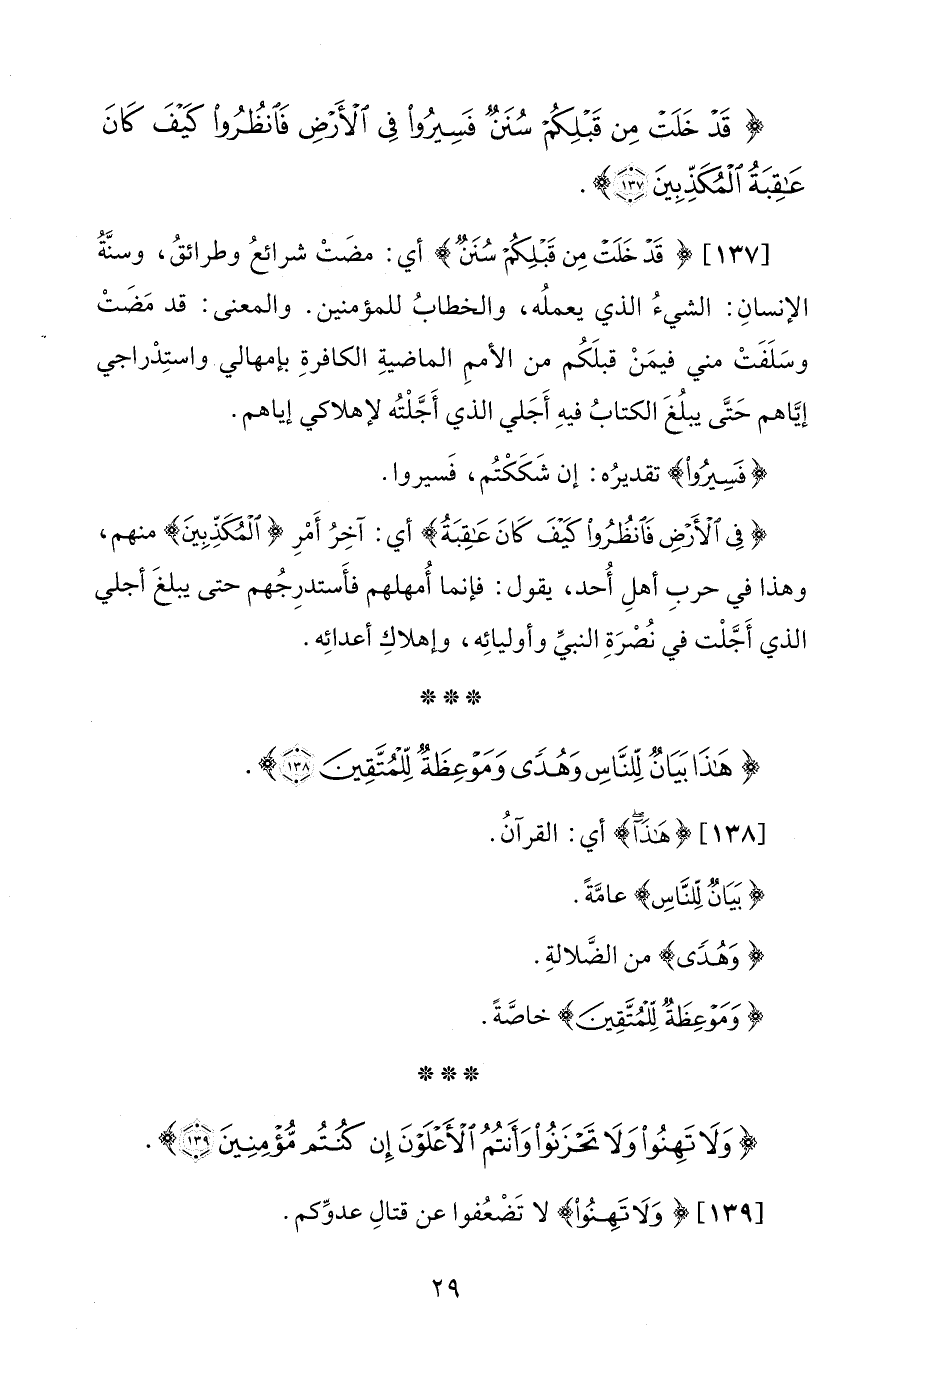 ﴿ قَدْ خَلَتْ مِن قَبْلِكُمْ سُنَنٌ فَسِيرُوا۟ فِى ٱلْأَرْضِ فَٱنظُرُوا۟ كَيْفَ كَانَ
عَـٰقِبَةُ ٱلْمُكَذِّبِينَ ١٣٧ ﴾ .
[١٣٧] ﴿ قَدْ خَلَتْ مِن قَبْلِكُمْ سُنَنٌ﴾ أي: مضَتْ شرائعُ وطرائقُ، وسنَّةُ
الإنسانِ: الشيءُ الذي يعملُه، والخطابُ للمؤمنين. والمعنى: قد مَضَتْ
وسَلَفَتْ مني فيمَنْ قبلَكُم من الأممِ الماضيةِ الكافرةِ بإمهالي واستِدْراجي
إيَّاهم حَتَّى يبلُغَ الكتابُ فيهِ أَجَلي الذي أَجَّلْتُه لإهلاكي إياهم.
﴿فَسِيرُوا۟﴾ تقديرُه: إن شَكَكْتُم، فَسيروا.
﴿ فِى ٱلْأَرْضِ فَٱنظُرُوا۟ كَيْفَ كَانَ عَـٰقِبَةُ﴾ أي: آخِرُ أَمْرِ ﴿ٱلْمُكَذِّبِينَ﴾ منهم،
وهذا في حربِ أهلِ أُحد، يقول: فإنما أُمهلهم فأَستدرِجُهم حتى يبلغَ أجلي
الذي أَجَّلْت في نُصْرَةِ النبيِّ وأوليائِه، وإهلاكِ أعدائِه.
* * *
﴿ هَـٰذَا بَيَانٌ لِّلنَّاسِ وَهُدًى وَمَوْعِظَةٌ لِّلْمُتَّقِينَ ١٣٨ ﴾ .
[١٣٨] ﴿هَـٰذَا﴾ أي: القرآنُ.
﴿ بَيَانٌ لِّلنَّاسِ﴾ عامَّةً.
﴿ وَهُدًى﴾ من الضَّلالةِ.
﴿ وَمَوْعِظَةٌ لِّلْمُتَّقِينَ﴾ خاصَّةً.
* * *
﴿ وَلَا تَهِنُوا۟ وَلَا تَحْزَنُوا۟ وَأَنتُمُ ٱلْأَعْلَوْنَ إِن كُنتُم مُّؤْمِنِينَ ١٣٩ ﴾ .
[١٣٩] ﴿ وَلَا تَهِنُوا۟﴾ لا تَضْعُفوا عن قتالِ عدوِّكم.
٢٩